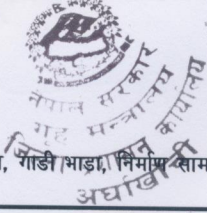 नेपाल सरकार
गृह मन्त्रालय
जिल्ला प्रशासन कार्यालय
अर्घाखाँची
, गाडी भाडा, निर्माण साम